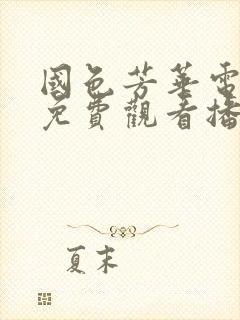 國色芳華電
免費觀看播
夏末